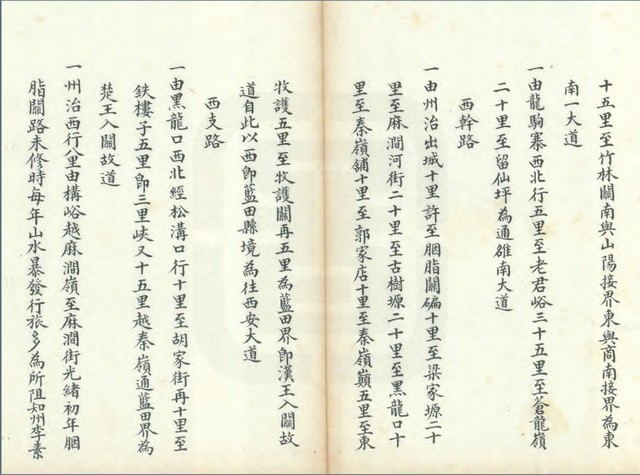 十五里至竹林關南與山陽接界東與商南接界為東
南一大道
一由龍駒寨西北行五里至老君峪三十五里至蒼龍嶺
二十里至留仙坪為通雒南大道
西幹路
一由州治出城十里許至胭脂關碥十里至梁家塬二十
里至麻澗河街二十里至古樹塬二十里至黑龍口十
里至秦嶺舖十里至郭家店十里至秦嶺巔五里至東
牧護五里至牧護關再五里為藍田界卽漢王入關故
道自此以西卽藍田縣境為往西安大道
西支路
一由黑龍口西北經松溝口行十里至胡家街再十里至
鉄樓子五里卽三里峽又十五里越秦嶺通藍田界為
楚王入關故道
一州治西行八里由構峪越麻澗嶺至麻澗街光緒初年胭
脂關路未修時每年山水暴發行旅多為所阻知州李素